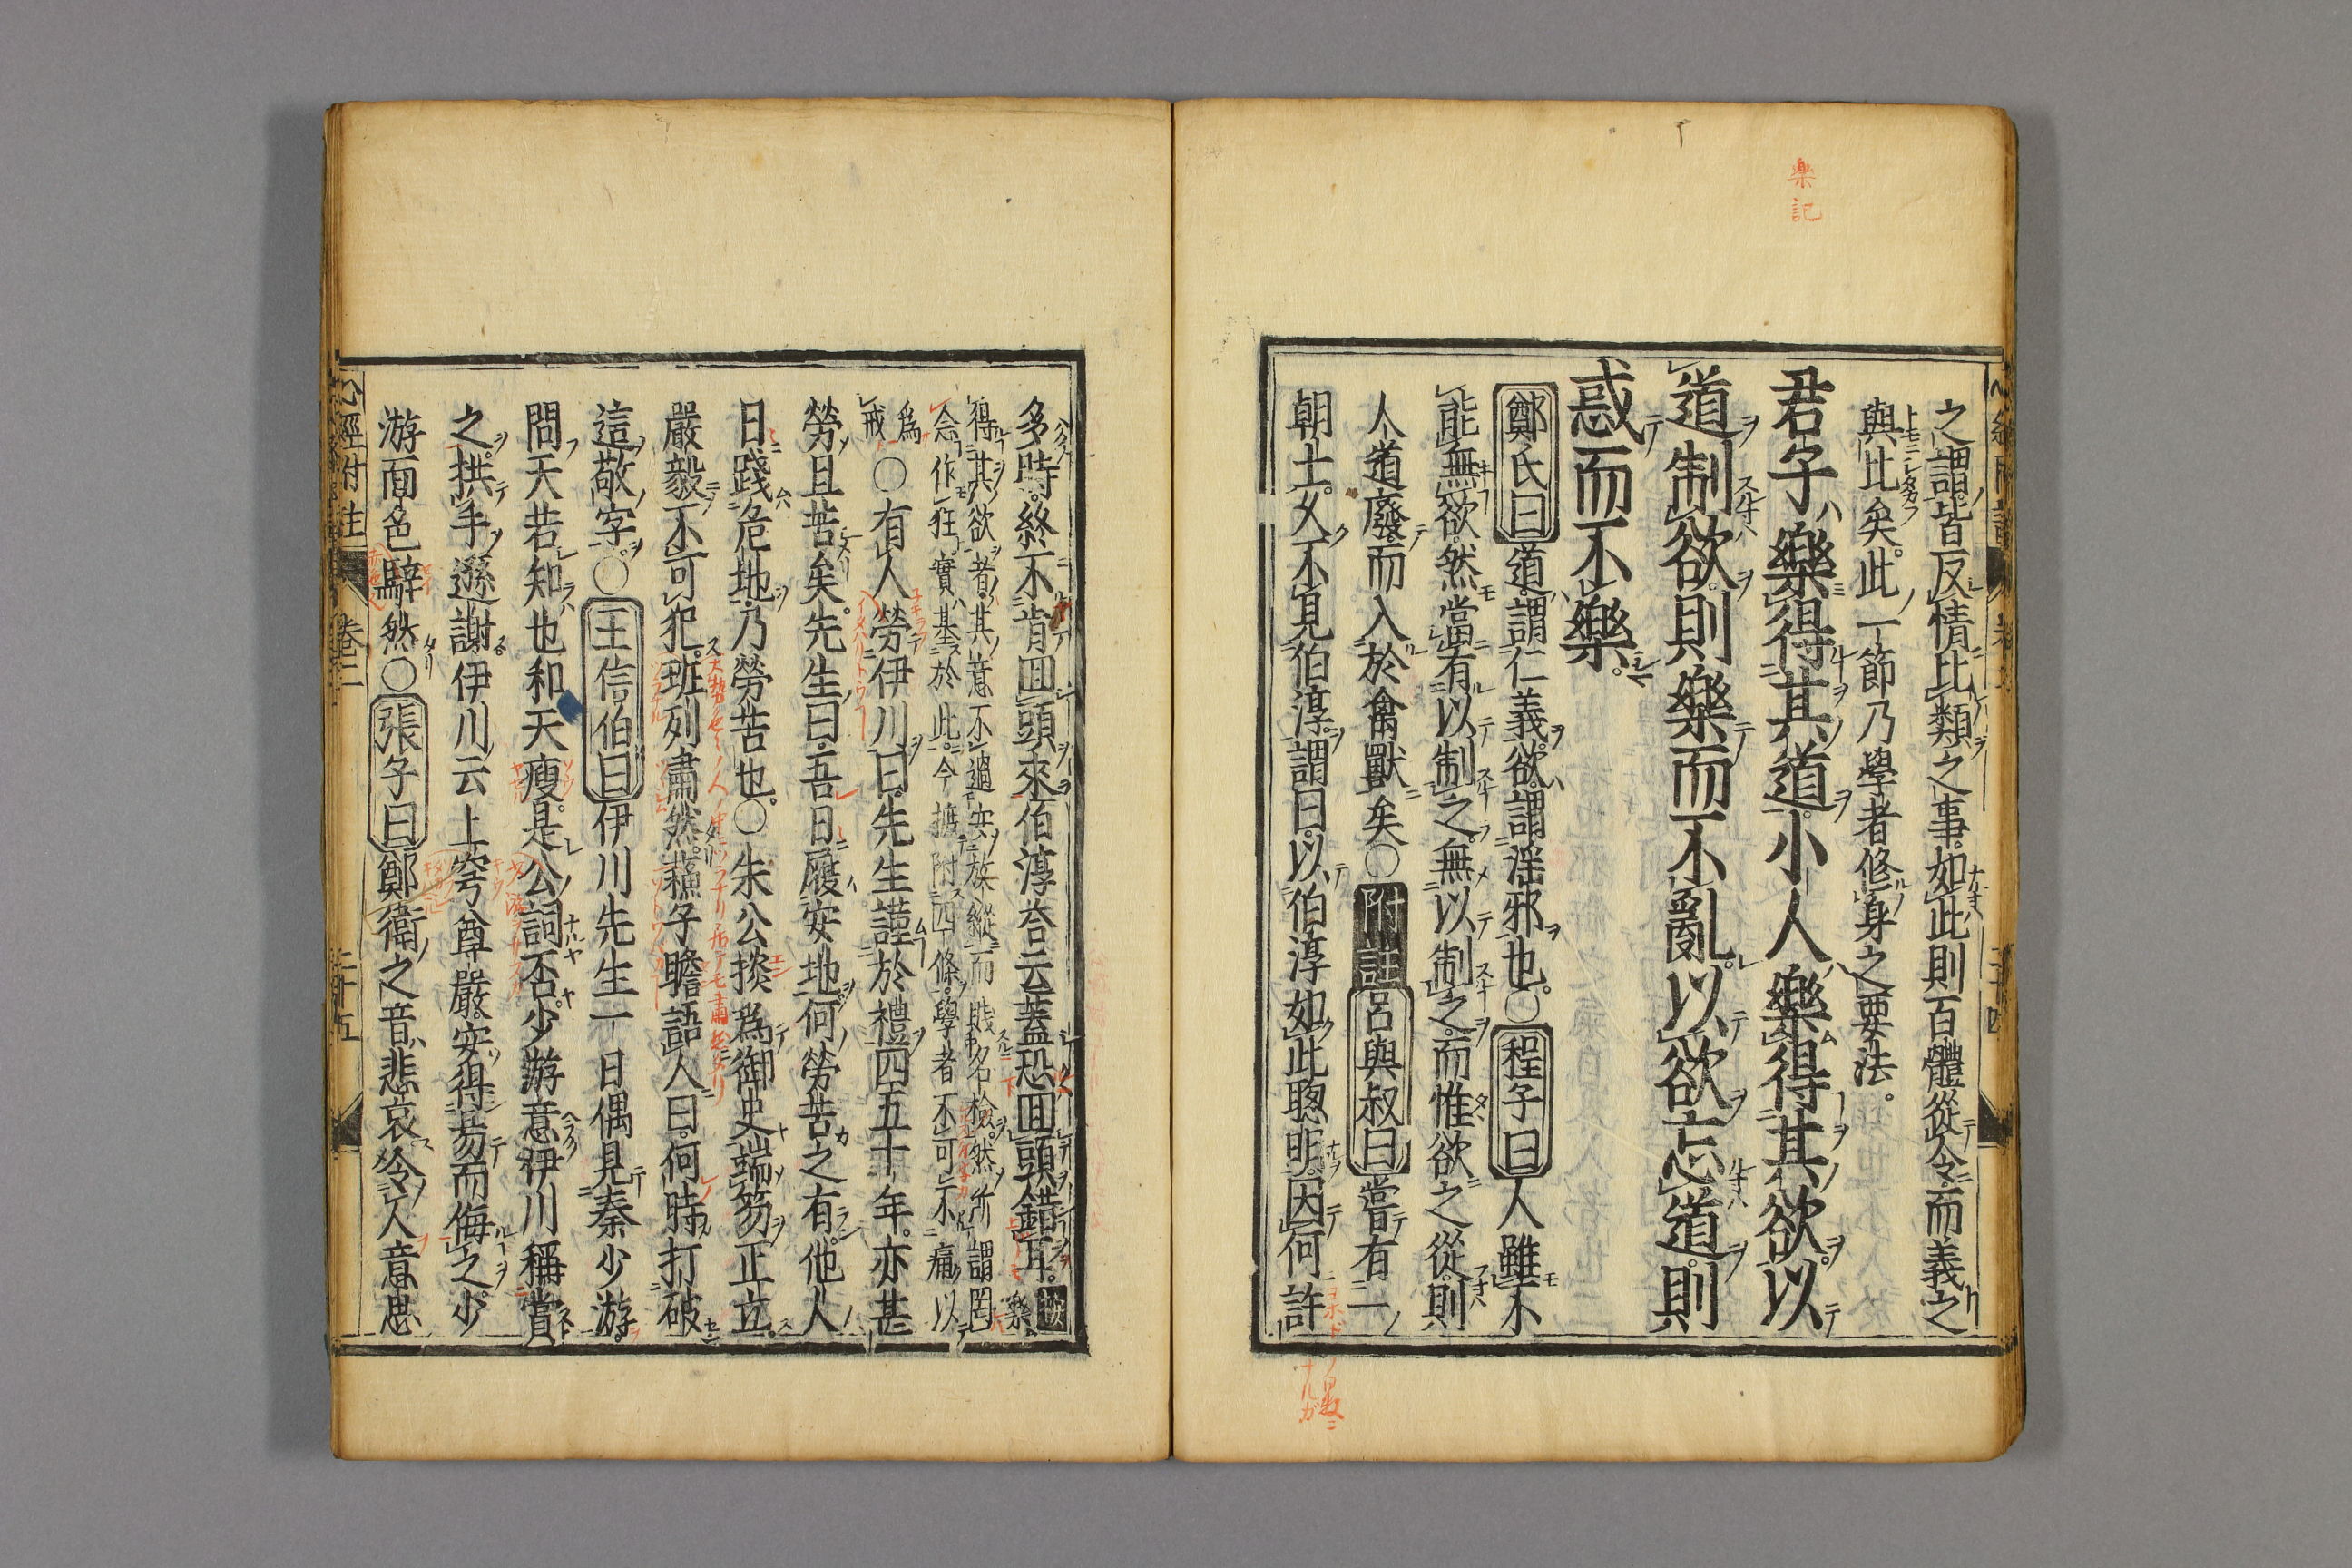 樂記
之謂皆反情比類之事如此則百體從令而義之
與比矣此一節乃學者修身之要法
君子樂得其道小人樂得其欲以
道制欲則樂而不亂以欲忘道則
惑而不樂
鄭氏曰道謂仁義欲謂淫邪也○程子曰人雖不
能無欲然當有以制之無以制之而惟欲之從則
人道廢而入於禽獸矣○附註呂與叔曰嘗有一
朝士久不見伯淳謂曰以伯淳如此聰明因何許
多時終不肯回頭來伯淳荅云蓋恐回頭錯耳 按樂
得其欲者其意不過安放縱而賤名檢然所謂罔
念作狂實基於此今摭附四條學者不可不痛以
爲
戒○有人勞伊川曰先生謹於禮四五十年亦甚
勞且苦矣先生曰吾日履安地何勞苦之有他人
日踐危地乃勞苦也○朱公掞爲御史端笏正立
嚴毅不可犯班列肅然蘇子瞻語人曰何時打破
這敬字○王信伯曰伊川先生一日偶見秦少游
問天若知也和天瘦是公詞否少游意伊川稱賞
之拱手遜謝伊川云上穹尊嚴安得易而侮之少
游面色騂然○張子曰鄭衛之音悲哀令人意思
心經附註 卷二 二十五